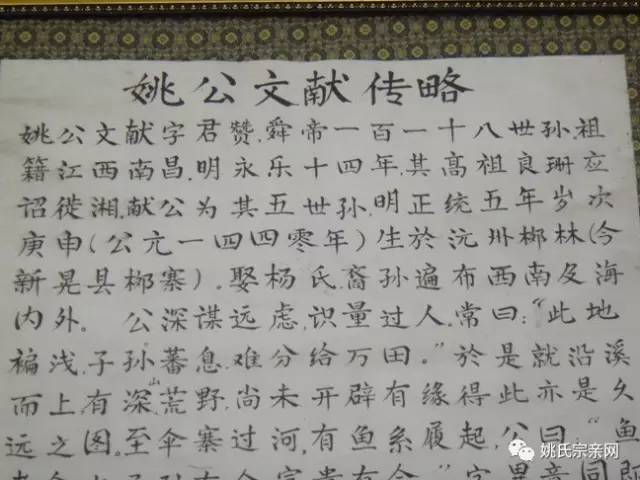 姚公文献传略
姚公文献字君赞,舜帝一百一十八世孙,祖
籍江西南昌,明永乐十四年,其高祖良珊应
诏徙湘,献公为其五世孙,明正统五年岁次
庚申(公元一四四零年)生於沅州梛林(今
新晃县梛寨),娶杨氏裔孙遍布西南及海
内外。 公深谋远虑,识量过人,常曰:“此地
褊浅,子孙蕃息,难分给万田。”於是就沿溪
而上,有深山荒野,尚未开辟有缘得此亦是久
远之图。至伞寨过河,有鱼系履起,公曰:“鱼
姚氏宗亲网